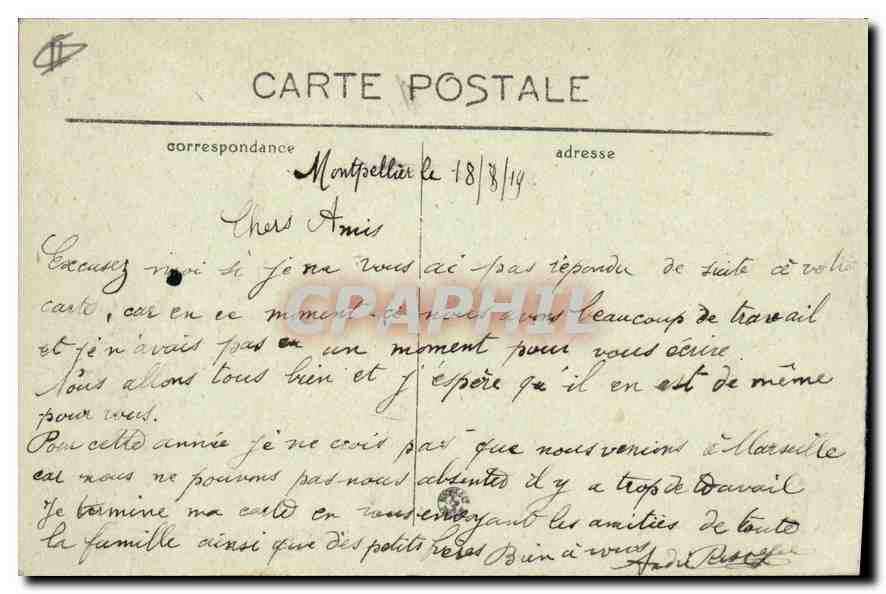 CARTE POSTALE
correspondance
adresse
Montpellier le 18/8/19
Chers Amis
Excusez moi si je ne vous ai pas répondu de suite à votre
carte, car en ce moment ci nous avons beaucoup de travail
et je n'avais pas eu un moment pour vous écrire
Nous allons tous bien et j'espère qu'il en est de même
pour vous.
Pour cette année je ne crois pas que nous venions à Marseille
car nous ne pouvons pas nous absenter il y a trop de travail
Je termine ma carte en vous envoyant les amitiés de toute
la famille ainsi que des petits frères Bien à vous
André
CPAPHIL